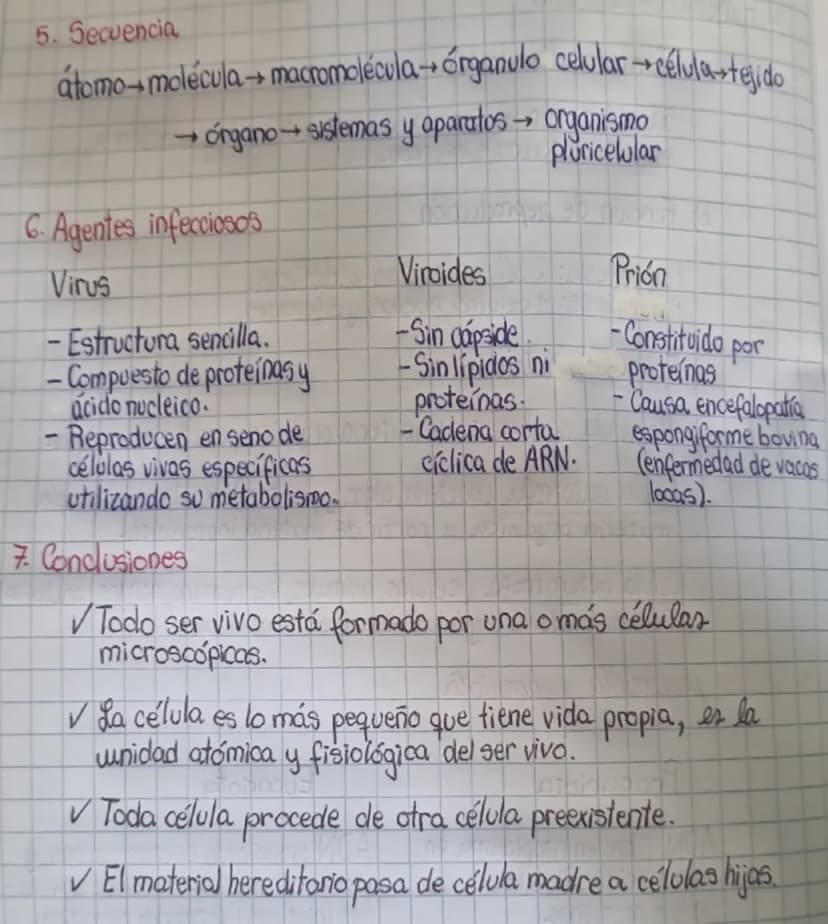 5. Secuencia
átomo→molécula→macromolécula→órganulo celular→célula→tejido
→órgano→sistemas y aparatos→ organismo
pluricelular
6. Agentes infecciosos
Virus
- Estructura sencilla.
- Compuesto de proteínas y
ácido nucleico.
- Reproducen en seno de
células vivas específicas
utilizando su metabolismo.
Viroides
- Sin cápside.
- Sin lípidos ni
proteínas.
- Cadena corta
cíclica de ARN.
Prión
- Constituido por
proteínas
- Causa encefalopatía
espongiforme bovina
(enfermedad de vacas
locas).
7. Conclusiones
✓ Todo ser vivo está formado por una o más células
microscópicas.
✓ La célula es lo más pequeño que tiene vida propia, es la
unidad atómica y fisiológica del ser vivo.
✓ Toda célula procede de otra célula preexistente.
✓ El material hereditario pasa de célula madre a células hijas.